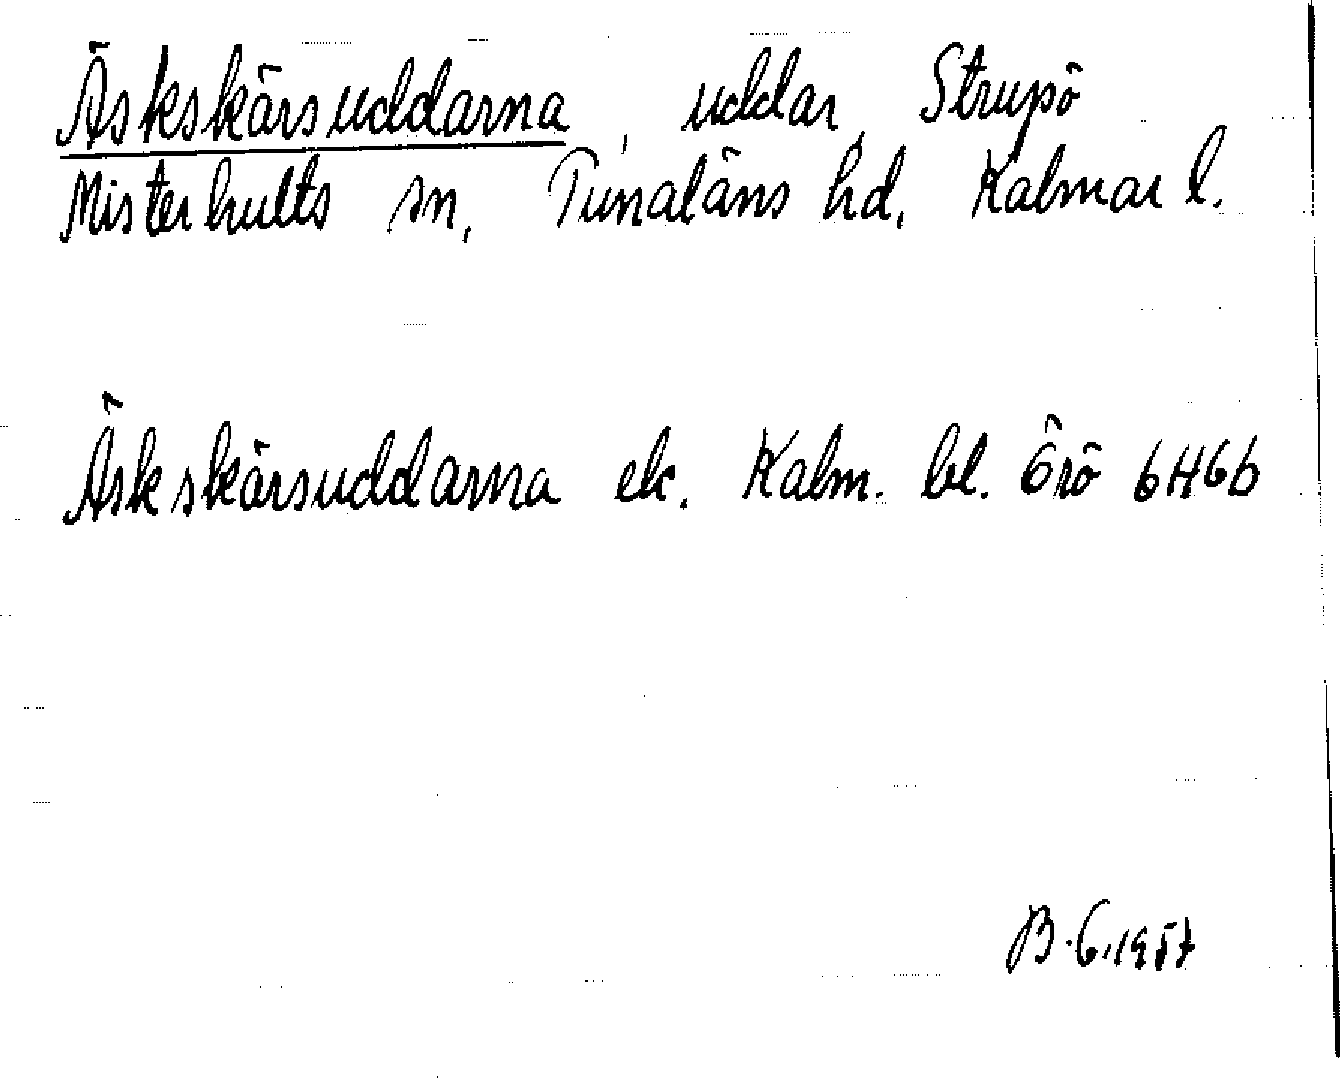 Äskskärsuddarna, uddar, Strupö
Misterhults sn, Tunaläns hd, Kalmar l.
Äskskärsuddarna ek. Kalm. bl. Örö 6H6b
B.G. 1957